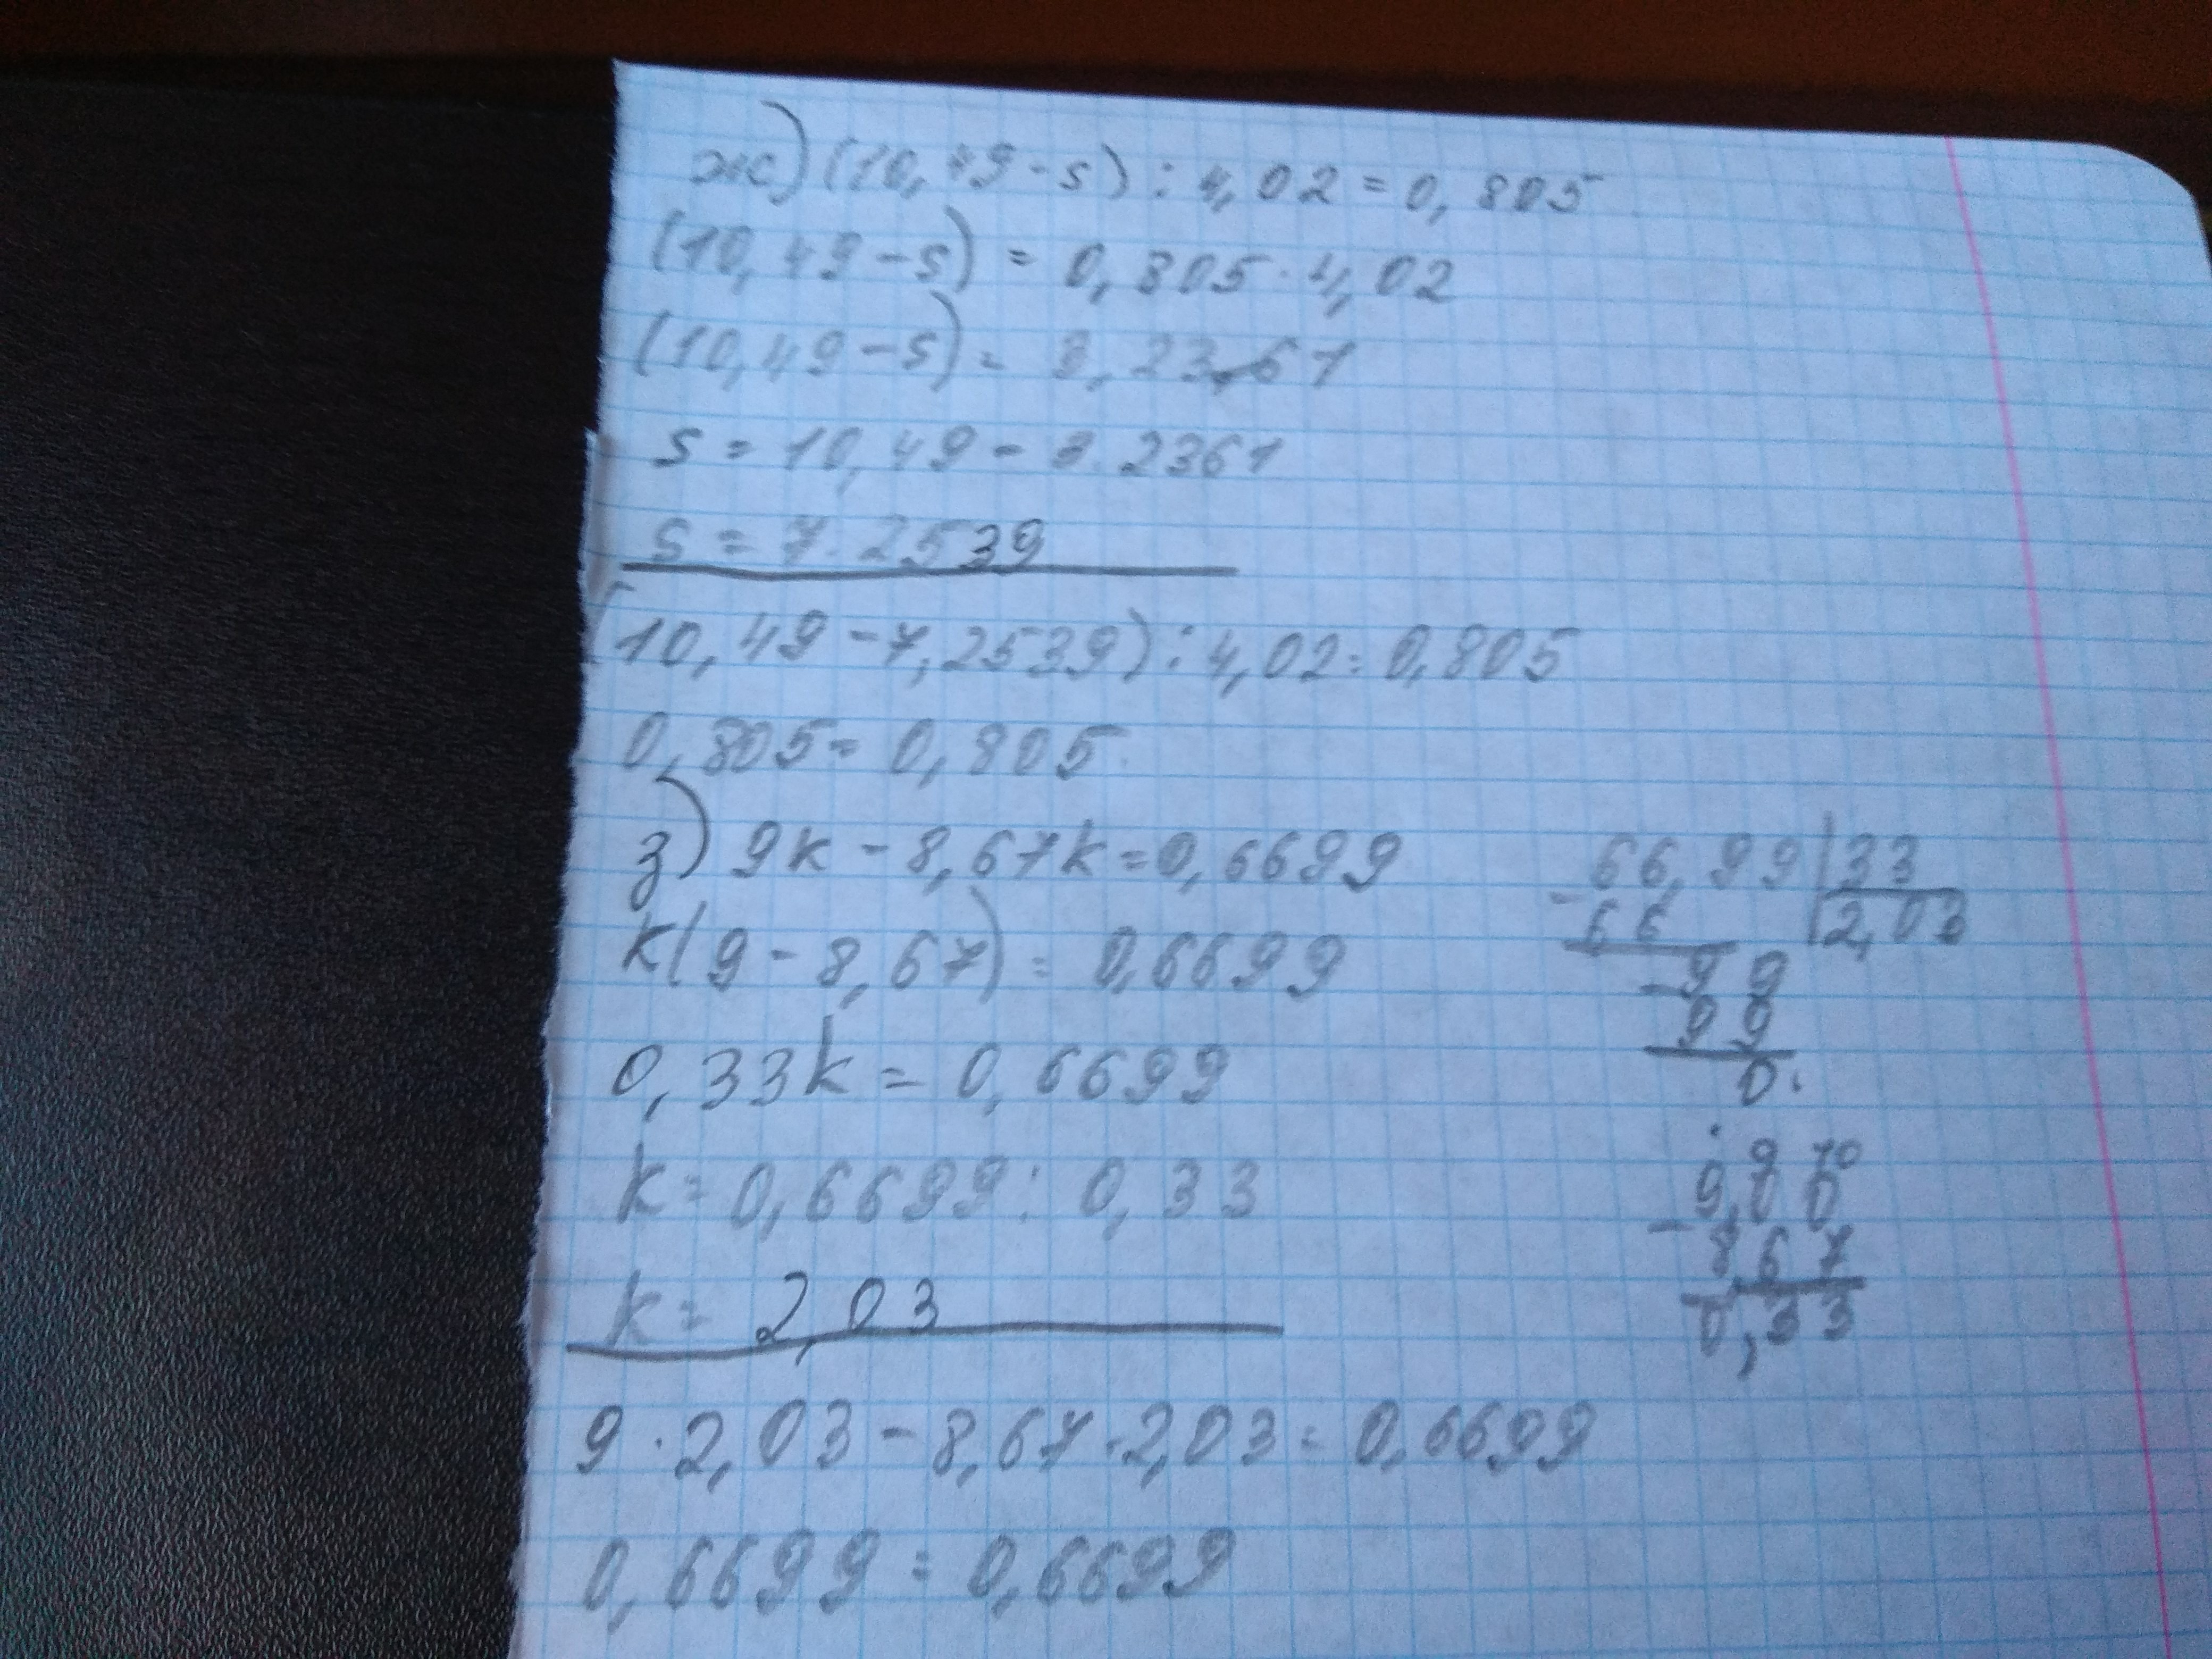 ж) (10,49-s) : 4,02 = 0,805
(10,49-s) = 0,805·4,02
(10,49-s) = 3,2361
s = 10,49 - 3.2361
s = 7.2539
(10,49-7,2539) : 4,02 = 0,805
0,805 = 0,805.
з) 9k - 8,67k = 0,6699
k(9-8,67) = 0,6699
0,33k = 0,6699
k = 0,6699 : 0,33
k = 2,03
9·2,03 - 8,67·2,03 = 0,6699
0,6699 = 0,6699
- 66,99 | 33
66 | 2,03
- 99
99
0.
9 10
- 9,00
8,67
0,33